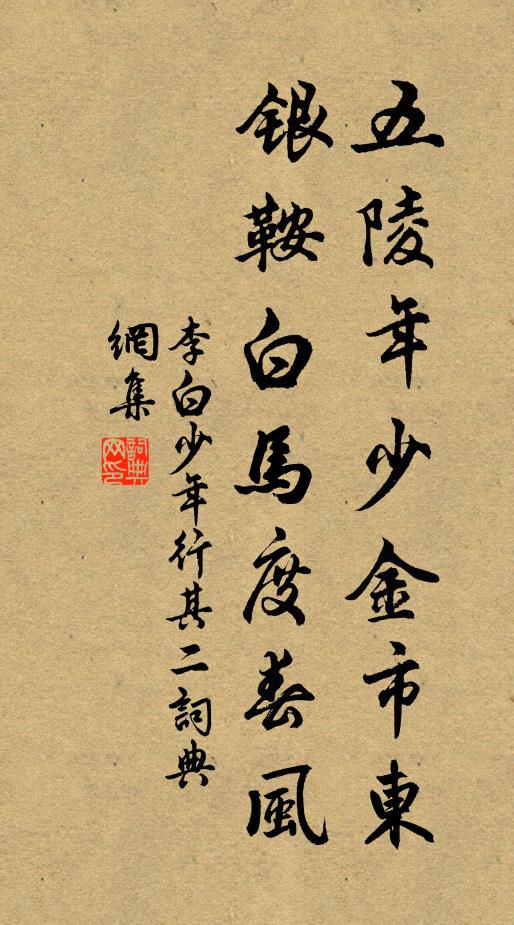 五陵年少金市東
銀鞍白馬度春風
李白少年行其二詞典
網集
詞典網印